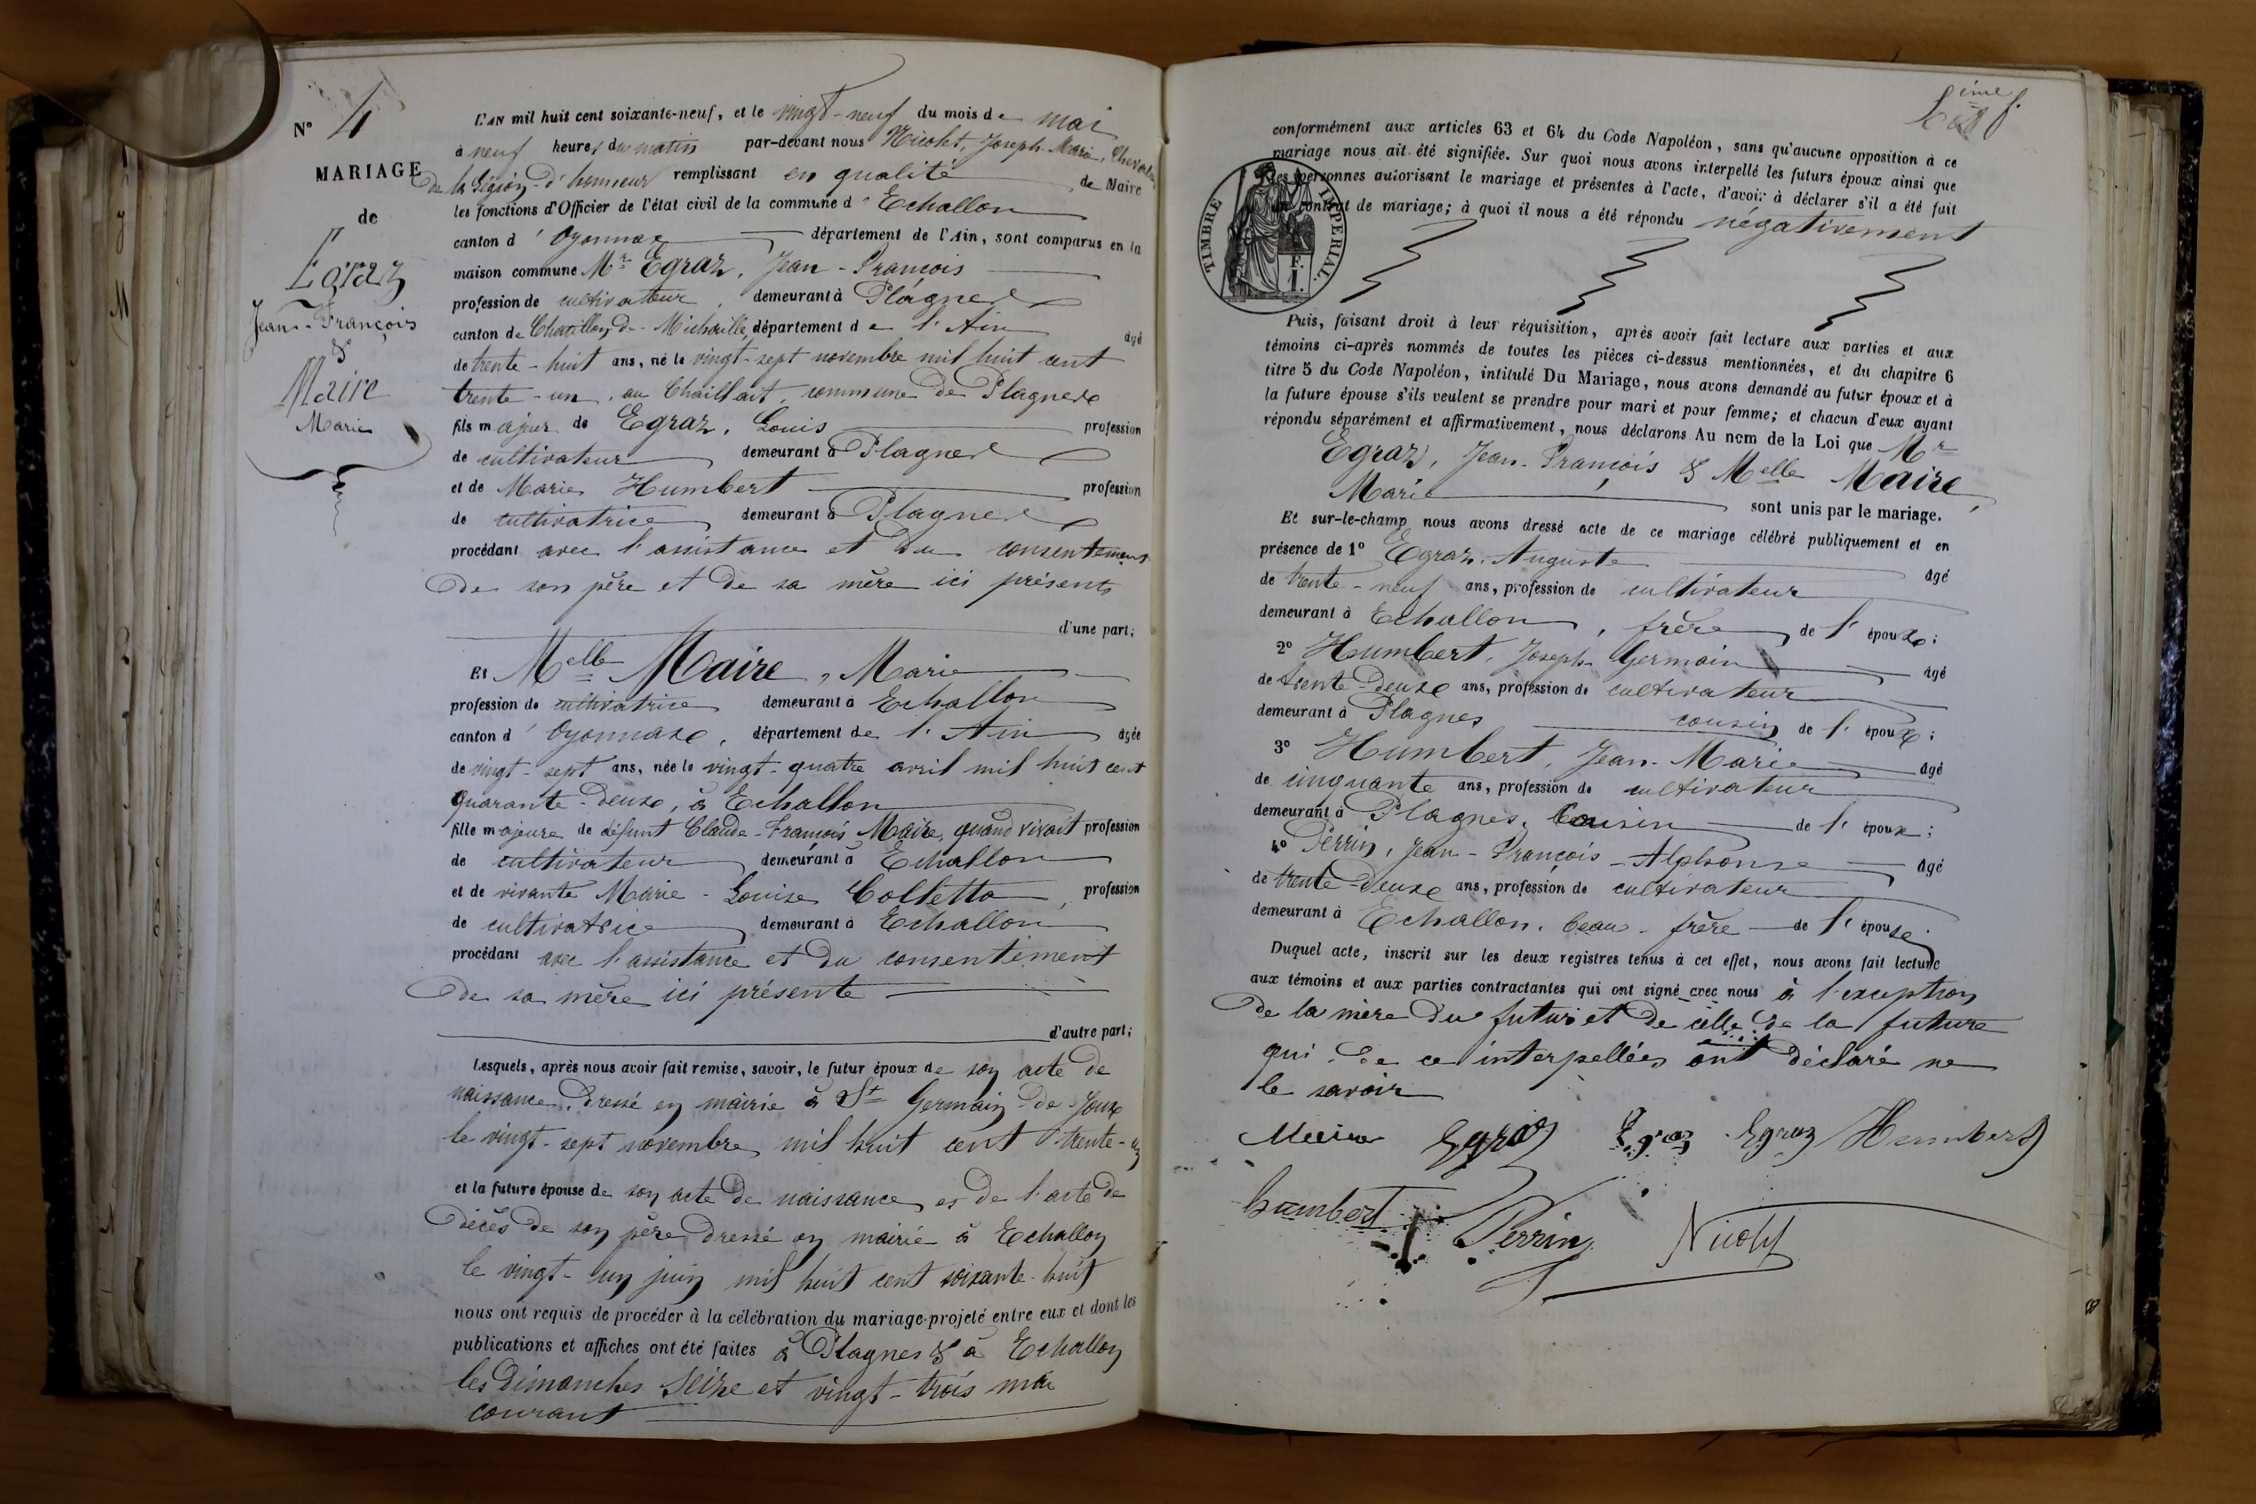 N° 4
MARIAGE
de
Egraz
Jean-François
&
Maire
Marie
L'AN mil huit cent soixante-neuf, et le vingt-neuf du mois de mai
à neuf heures du matin par-devant nous Nicolet, Joseph Marie, Chevalier
de la Légion d'honneur remplissant en qualité de Maire
les fonctions d'Officier de l'état civil de la commune d'Echallon
canton d'Oyonnax département de l'Ain, sont comparus en la
maison commune Mr Egraz, Jean-François
profession de cultivateur, demeurant à Plagnes
canton de Chatillon-de-Michaille, département de l'Ain âgé
de trente-huit ans, né le vingt-sept novembre mil huit cent
trente-un, au Chaillait, commune de Plagnes
fils majeur de Egraz, Louis profession
de cultivateur demeurant à Plagnes
et de Marie Humbert profession
de cultivatrice demeurant à Plagnes
procédant avec l'assistance et du consentement
de son père et de sa mère ici présents
d'une part;
Et Melle Maire, Marie
profession de cultivatrice demeurant à Echallon
canton d'Oyonnax, département de l'Ain âgée
de vingt-sept ans, née le vingt-quatre avril mil huit cent
quarante-deux, à Echallon
fille majeure de défunt Claude-François Maire, quand vivait profession
de cultivateur demeurant à Echallon
et de vivante Marie-Louise Colletta, profession
de cultivatrice demeurant à Echallon
procédant avec l'assistance et du consentement
de sa mère ici présente
d'autre part;
Lesquels, après nous avoir fait remise, savoir, le futur époux de son acte de
naissance, dressé en mairie à St Germain-de-Joux
le vingt-sept novembre mil huit cent trente-un
et la future épouse de son acte de naissance et de l'acte de
décès de son père dressé en mairie à Echallon
le vingt-un juin mil huit cent soixante-huit
nous ont requis de procéder à la célébration du mariage projeté entre eux et dont les
publications et affiches ont été faites à Plagnes & à Echallon
les dimanches seize et vingt-trois mai
courant
conformément aux articles 63 et 64 du Code Napoléon, sans qu'aucune opposition à ce
mariage nous ait été signifiée. Sur quoi nous avons interpellé les futurs époux ainsi que
les personnes autorisant le mariage et présentes à l'acte, d'avoir à déclarer s'il a été fait
un contrat de mariage; à quoi il nous a été répondu négativement
TIMBRE IMPÉRIAL.
F.
1.
Puis, faisant droit à leur réquisition, après avoir fait lecture aux parties et aux
témoins ci-après nommés de toutes les pièces ci-dessus mentionnées, et du chapitre 6
titre 5 du Code Napoléon, intitulé Du Mariage, nous avons demandé au futur époux et à
la future épouse s'ils veulent se prendre pour mari et pour femme; et chacun d'eux ayant
répondu séparément et affirmativement, nous déclarons Au nom de la Loi que Mr
Egraz, Jean-François & Melle Maire,
Marie sont unis par le mariage.
Et sur-le-champ nous avons dressé acte de ce mariage célébré publiquement et en
présence de 1° Egraz, Auguste âgé
de trente-neuf ans, profession de cultivateur
demeurant à Echallon, frère de l'époux;
2° Humbert, Joseph Germain âgé
de trente-deux ans, profession de cultivateur
demeurant à Plagnes cousin de l'époux;
3° Humbert, Jean-Marie âgé
de cinquante ans, profession de cultivateur
demeurant à Plagnes, Cousin de l'époux;
4° Perrin, Jean-François-Alphonse âgé
de trente-deux ans, profession de cultivateur
demeurant à Echallon, beau-frère de l'épouse
Duquel acte, inscrit sur les deux registres tenus à cet effet, nous avons fait lecture
aux témoins et aux parties contractantes qui ont signé avec nous à l'exception
de la mère du futur et de celle de la future
qui de ce interpellées ont déclaré ne
le savoir
Maire Egraz Egraz Egraz Humbert
humbert Perrin Nicolet